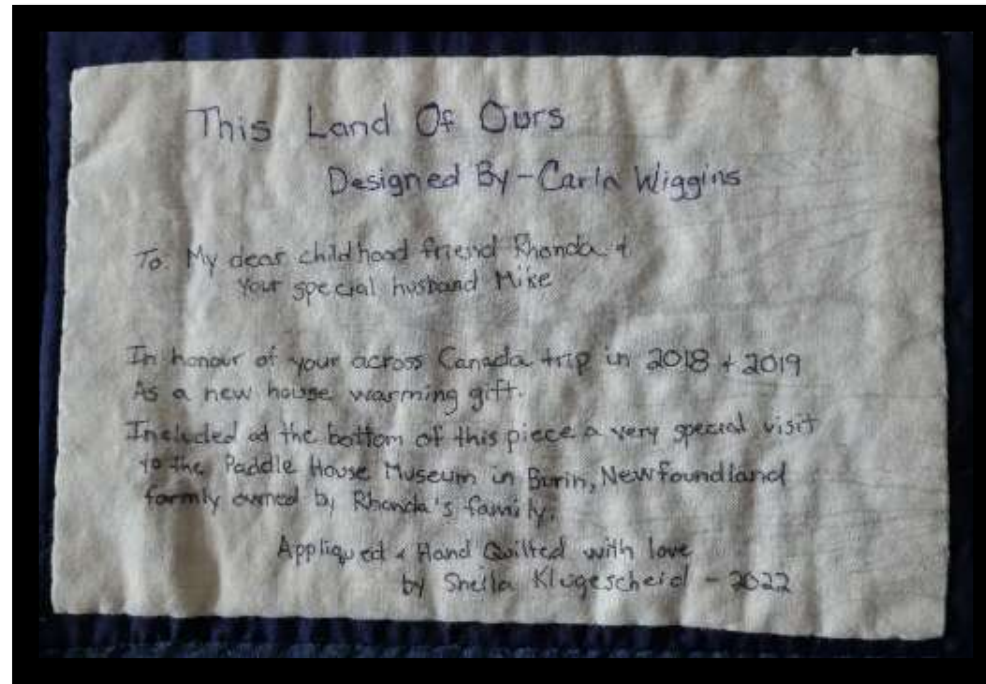 This Land Of Ours
Designed By - Carla Wiggins
To: My dear childhood friend Rhonda &
Your special husband Mike
In honour of your across Canada trip in 2018 + 2019
As a new house warming gift.
Included at the bottom of this piece a very special visit
to the Paddle House Museum in Burin, Newfoundland
formly owned by Rhonda's family.
Appliqued & Hand Quilted with love
by Sheila Klugescheid - 2022